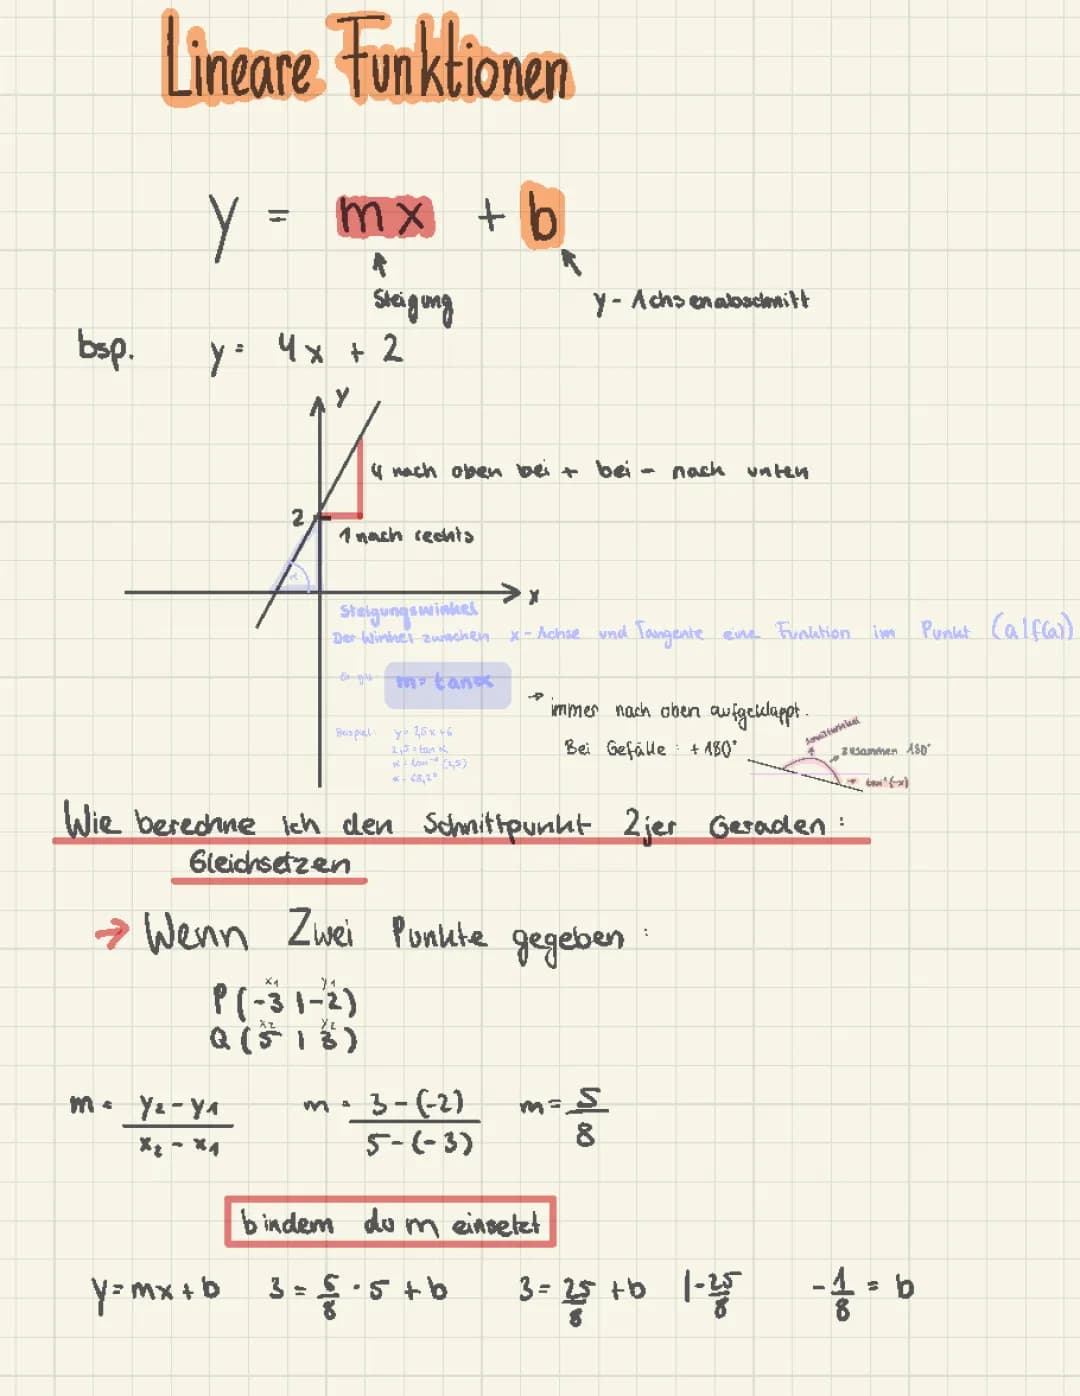 Lineare Funktionen
y = mx + b
Steigung
y-Achsenabschnitt
bsp. y = 4x + 2
y
4 nach oben bei + bei - nach unten
2
1 nach rechts
α
x
Steigungswinkel
Der Winkel zwischen x-Achse und Tangente eine Funktion im Punkt (a|f(a))
Es gilt m = tan α
→ immer nach oben aufgeklappt.
Bei Gefälle: +180°
Schnittwinkel
→ zusammen 180°
→ tan⁻¹(-x)
Beispiel: y = 2,5x+6
2,5 = tan α
α = tan⁻¹ (2,5)
α = 68,2°
Wie berechne ich den Schnittpunkt 2jer Geraden:
Gleichsetzen
→ Wenn Zwei Punkte gegeben:
x₁ y₁
P(-3 | -2)
x₂ y₂
Q (5 | 3)
m = y₂ - y₁ / x₂ - x₁ m = 3 - (-2) / 5 - (-3) m = 5/8
b indem du m einsetzt
y = mx + b 3 = 5/8 · 5 + b 3 = 25/8 + b |-25/8 -1/8 = b